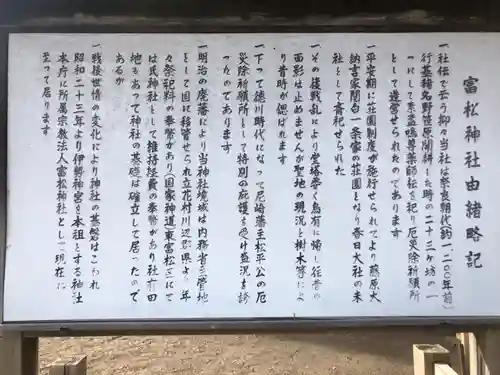 富松神社由緒略記
一社伝で云う抑々当社は奈良朝代(約一、二〇〇年前)
行基猪名野笹原開耕した時の二十三ケ坊の一
つにして素盞嗚尊薬師仏を祀り厄災除祈願所
として造営せられたのであります
一平安期に荘園制度が施行せられてより藤原大
納言家関白一条家の荘園となり春日大社の末
社として斎祀せられた
一その後戦乱により堂塔悉く烏有に帰し往昔の
面影は止めませんが聖地の現況と樹木等によ
り昔時が偲ばれます
一下って徳川時代になって尼崎藩主松平公の厄
災除祈願所として特別の庇護を受け盛況を誇
ったのであります
一明治の廃藩により当神社境域は内務省の管地
として国に移管せられ立花村川辺郡県より年
々祭祀料の奉幣があり(国家神道)東富松区にて
は氏神社として維持経費の奉幣があり社有田
地もあって神社の基礎は確立して居ったので
あるが
一戦後世情の変化により神社の基盤はこわれ
昭和二十三年より伊勢神宮を本祖とする神社
本庁に所属宗教法人富松神社として現在に
至って居ります